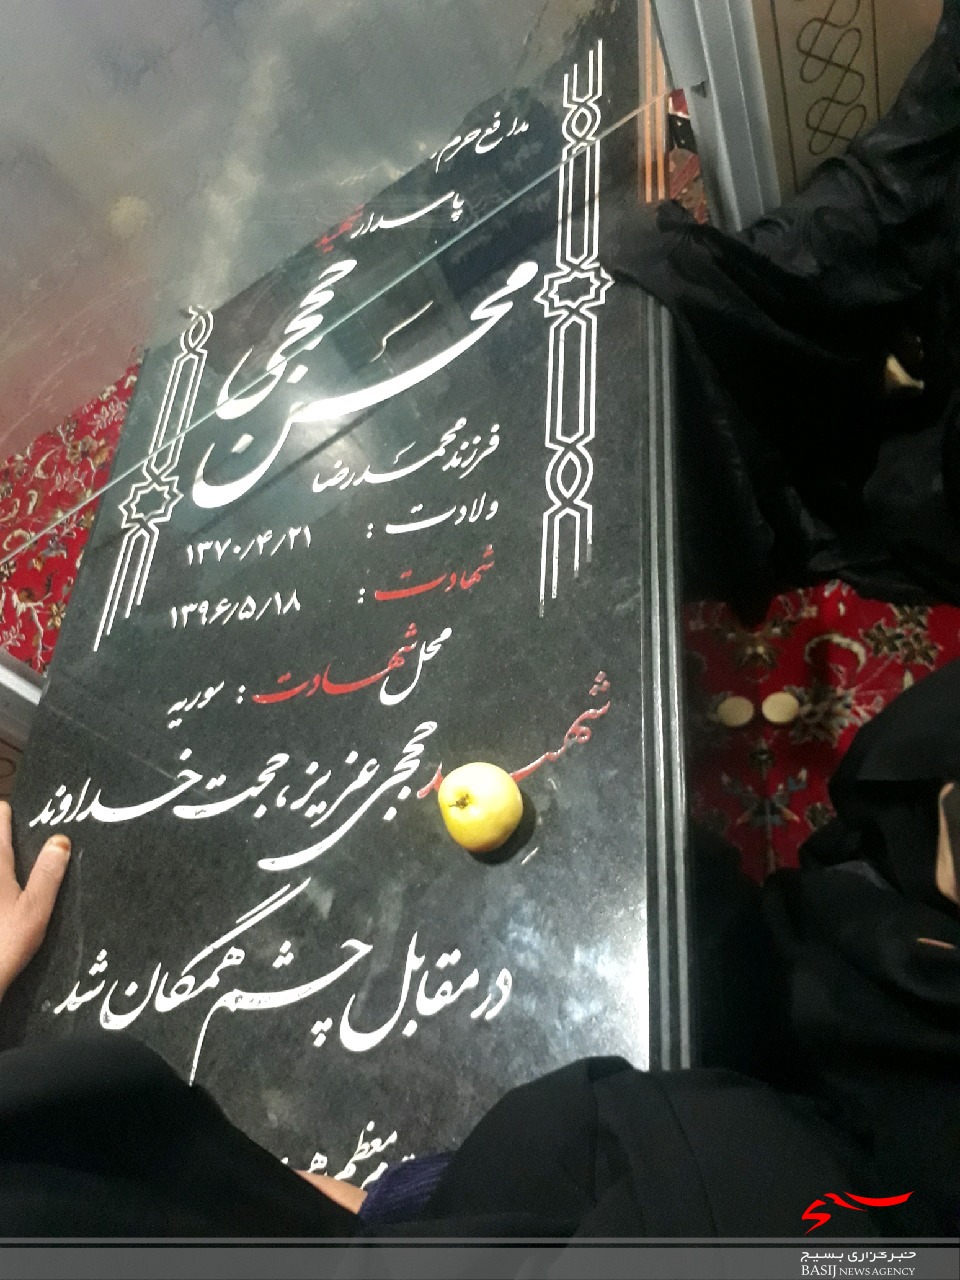 مدافع حرم
پاسدار شهید
محسن حججی
فرزند محمدرضا
ولادت : ۱۳۷۰/۴/۲۱
شهادت : ۱۳۹۶/۵/۱۸
محل شهادت : سوریه
شهید حججی عزیز، حجت خداوند
در مقابل چشم همگان شد
معظم
خبرگزاری بسیج
BASIJ NEWS AGENCY